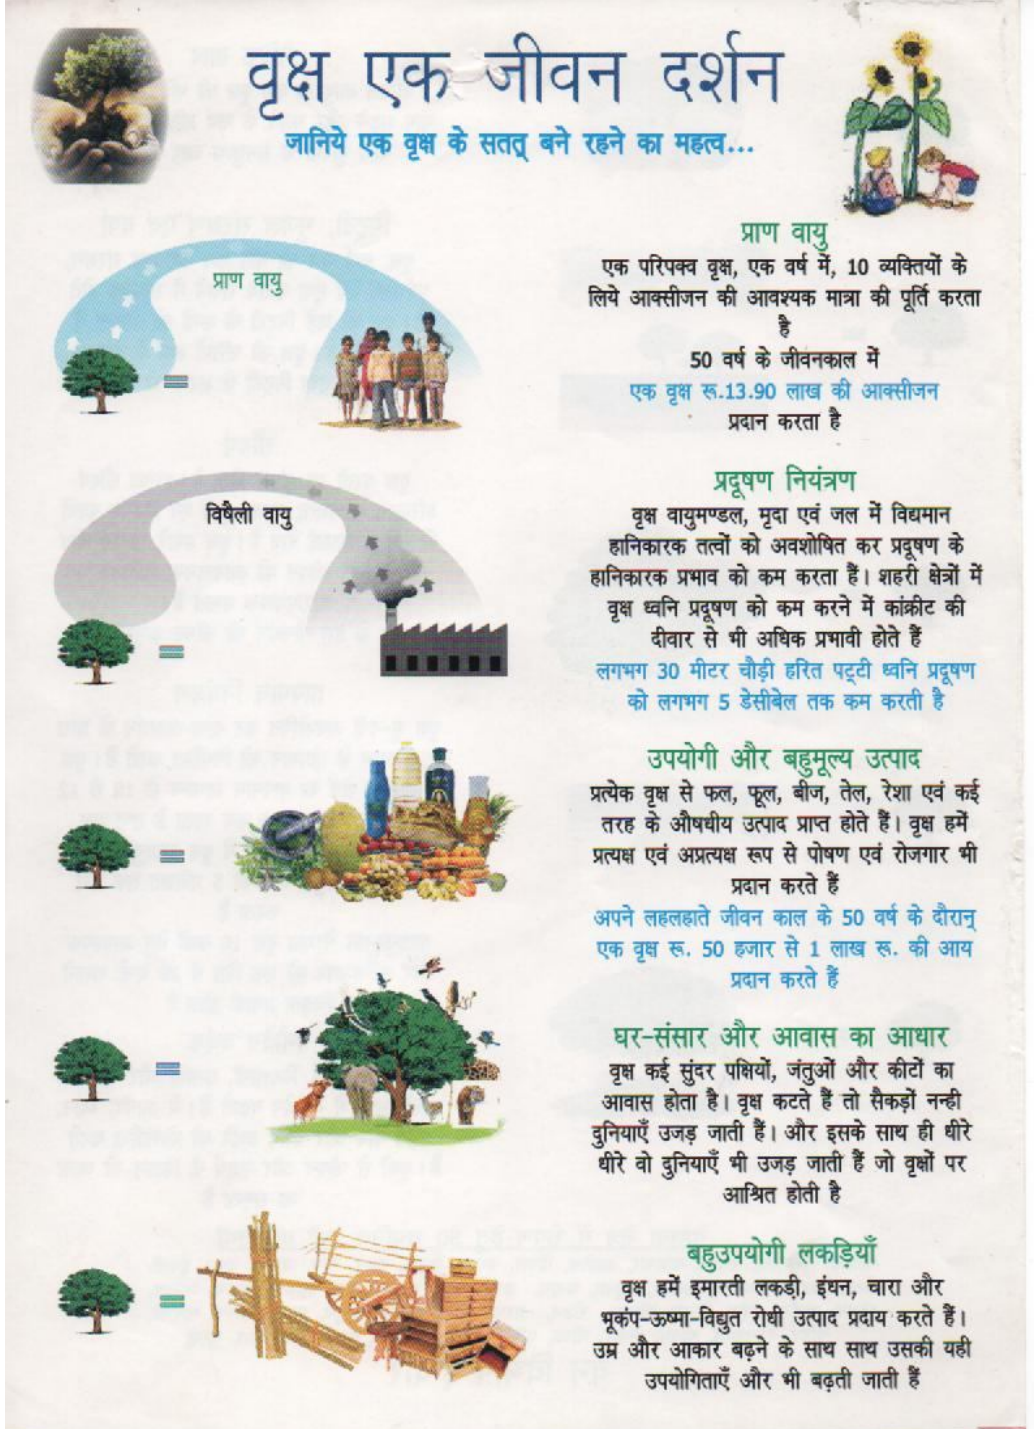 वृक्ष एक जीवन दर्शन
जानिये एक वृक्ष के सततृ बने रहने का महत्व...
प्राण वायु
प्राण वायु
एक परिपक्व वृक्ष, एक वर्ष में, 10 व्यक्तियों के
लिये आक्सीजन की आवश्यक मात्रा की पूर्ति करता
है
50 वर्ष के जीवनकाल में
एक वृक्ष रू.13.90 लाख की आक्सीजन
प्रदान करता है
विषैली वायु
प्रदूषण नियंत्रण
वृक्ष वायुमण्डल, मृदा एवं जल में विद्यमान
हानिकारक तत्वों को अवशोषित कर प्रदूषण के
हानिकारक प्रभाव को कम करता हैं। शहरी क्षेत्रों में
वृक्ष ध्वनि प्रदूषण को कम करने में कांक्रीट की
दीवार से भी अधिक प्रभावी होते हैं
लगभग 30 मीटर चौड़ी हरित पट्टी ध्वनि प्रदूषण
को लगभग 5 डेसीबेल तक कम करती है
उपयोगी और बहुमूल्य उत्पाद
प्रत्येक वृक्ष से फल, फूल, बीज, तेल, रेशा एवं कई
तरह के औषधीय उत्पाद प्राप्त होते हैं। वृक्ष हमें
प्रत्यक्ष एवं अप्रत्यक्ष रूप से पोषण एवं रोजगार भी
प्रदान करते हैं
अपने लहलहाते जीवन काल के 50 वर्ष के दौरान्
एक वृक्ष रू. 50 हजार से 1 लाख रू. की आय
प्रदान करते हैं
घर-संसार और आवास का आधार
वृक्ष कई सुंदर पक्षियों, जंतुओं और कीटों का
आवास होता है। वृक्ष कटते हैं तो सैकड़ों नन्ही
दुनियाएँ उजड़ जाती हैं। और इसके साथ ही धीरे
धीरे वो दुनियाएँ भी उजड़ जाती हैं जो वृक्षों पर
आश्रित होती है
बहुउपयोगी लकड़ियाँ
वृक्ष हमें इमारती लकड़ी, इंधन, चारा और
भूकंप-ऊष्मा-विद्युत रोधी उत्पाद प्रदाय करते हैं।
उम्र और आकार बढ़ने के साथ साथ उसकी यही
उपयोगिताएँ और भी बढ़ती जाती हैं